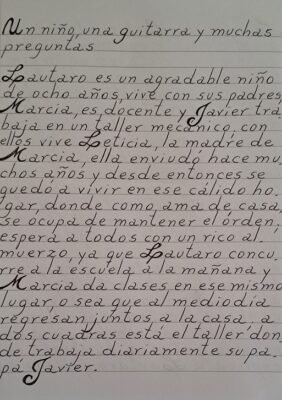 Un niño, una guitarra y muchas
preguntas
Lautaro es un agradable niño
de ocho años, vive con sus padres,
Marcia, es docente y Javier tra-
baja en un taller mecánico, con
ellos vive Leticia, la madre de
Marcia, ella enviudó hace mu-
chos años y desde entonces se
quedó a vivir en ese cálido ho-
gar, donde como, ama de casa,
se ocupa de mantener el órden,
esperá a todos con un rico al-
muerzo, ya que Lautaro concu-
rre a la escuela a la mañana y
Marcia da clases, en ese mismo
lugar, o sea que al mediodía
regresan juntos a la casa, a
dos, cuadras está el taller don-
de trabaja diariamente su pa-
pá Javier.